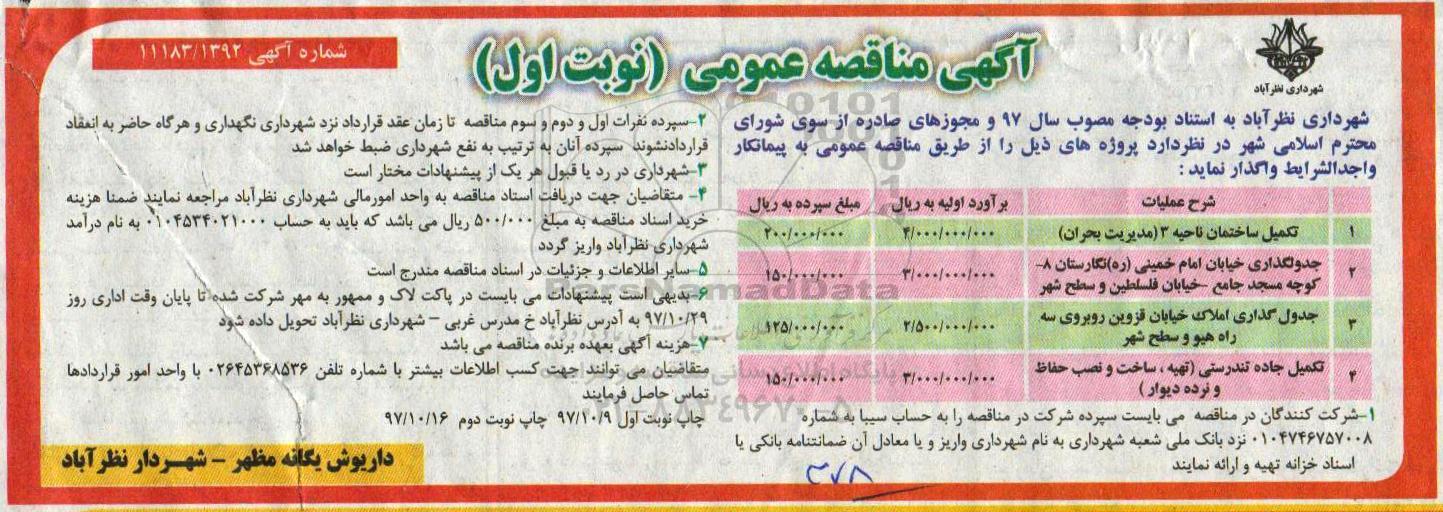 شهرداری نظرآباد
آگهی مناقصه عمومی (نوبت اول)
شماره آگهی ۱۱۱۸۳/۱۳۹۲
شهرداری نظرآباد به استناد بودجه مصوب سال ۹۷ و مجوزهای صادره از سوی شورای
محترم اسلامی شهر در نظردارد پروژه های ذیل را از طریق مناقصه عمومی به پیمانکار
واجدالشرایط واگذار نماید :
شرح عملیات برآورد اولیه به ریال مبلغ سپرده به ریال
۱ تکمیل ساختمان ناحیه ۳ (مدیریت بحران) ۴/۰۰۰/۰۰۰/۰۰۰ ۲۰۰/۰۰۰/۰۰۰
۲ جدولگذاری خیابان امام خمینی (ره)نگارستان ۸-
کوچه مسجد جامع -خیابان فلسطین و سطح شهر ۳/۰۰۰/۰۰۰/۰۰۰ ۱۵۰/۰۰۰/۰۰۰
۳ جدول گذاری املاک خیابان قزوین روبروی سه
راه هیو و سطح شهر ۲/۵۰۰/۰۰۰/۰۰۰ ۱۲۵/۰۰۰/۰۰۰
۴ تکمیل جاده تندرستی (تهیه ، ساخت و نصب حفاظ
و نرده دیوار ) ۳/۰۰۰/۰۰۰/۰۰۰ ۱۵۰/۰۰۰/۰۰۰
۱-شرکت کنندگان در مناقصه می بایست سپرده شرکت در مناقصه را به حساب سیبا به شماره
۰۱۰۴۷۴۶۷۵۷۰۰۸ نزد بانک ملی شعبه شهرداری به نام شهرداری واریز و یا معادل آن ضمانتنامه بانکی یا
اسناد خزانه تهیه و ارائه نمایند
۲-سپرده نفرات اول و دوم و سوم مناقصه تا زمان عقد قرارداد نزد شهرداری نگهداری و هرگاه حاضر به انعقاد
قراردادنشوند سپرده آنان به ترتیب به نفع شهرداری ضبط خواهد شد
۳-شهرداری در رد یا قبول هر یک از پیشنهادات مختار است
۴- متقاضیان جهت دریافت اسناد مناقصه به واحد امورمالی شهرداری نظرآباد مراجعه نمایند ضمنا هزینه
خرید اسناد مناقصه به مبلغ ۵۰۰/۰۰۰ ریال می باشد که باید به حساب ۰۱۰۴۵۳۴۰۲۱۰۰۰ به نام درآمد
شهرداری نظرآباد واریز گردد
۵-سایر اطلاعات و جزئیات در اسناد مناقصه مندرج است
۶-بدیهی است پیشنهادات می بایست در پاکت لاک و ممهور به مهر شرکت شده تا پایان وقت اداری روز
۹۷/۱۰/۲۹ به آدرس نظرآباد خ مدرس غربی – شهرداری نظرآباد تحویل داده شود
۷-هزینه آگهی بعهده برنده مناقصه می باشد
متقاضیان می توانند جهت کسب اطلاعات بیشتر با شماره تلفن ۰۲۶۴۵۳۶۸۵۳۶ با واحد امور قراردادها
تماس حاصل فرمایند
چاپ نوبت اول ۹۷/۱۰/۹ چاپ نوبت دوم ۹۷/۱۰/۱۶
داریوش یگانه مظهر – شهردار نظرآباد
ParsNamadData
۳۷۸